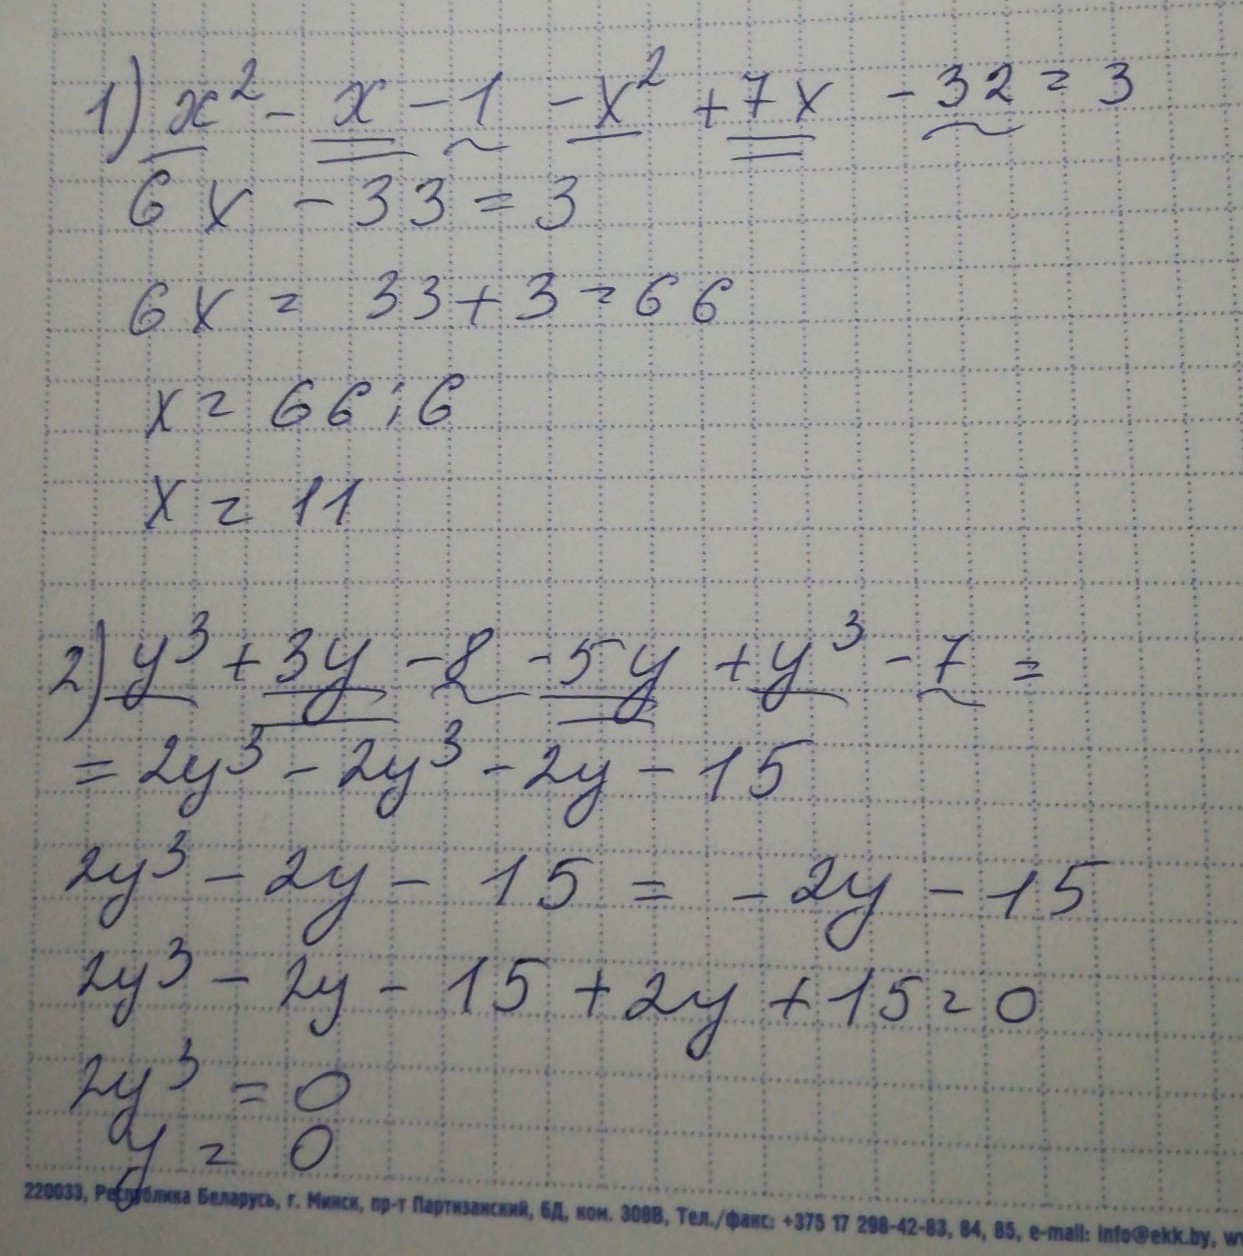 1) x² - x - 1 - x² + 7x - 32 = 3
6x - 33 = 3
6x = 33 + 3 = 66
x = 66 : 6
x = 11
2) y³ + 3y - 8 - 5y + y³ - 7 =
= 2y³ - 2y³ - 2y - 15
2y³ - 2y - 15 = - 2y - 15
2y³ - 2y - 15 + 2y + 15 = 0
2y³ = 0
y = 0
220033, Республика Беларусь, г. Минск, пр-т Партизанский, 6Д, ком. 308В, Тел./факс: +375 17 298-42-83, 84, 85, e-mail: info@ekk.by,